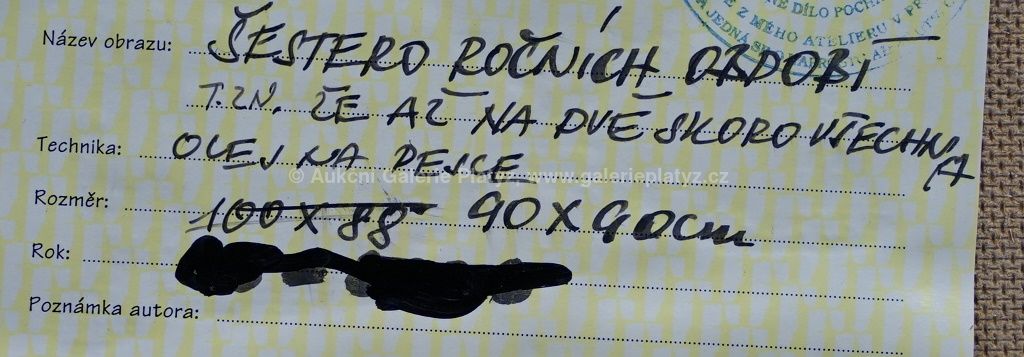 NÉ DÍLO POCHÁ
E Z MÉHO ATELIERU V PR
A JEDNÁ SE O
Název obrazu: ŠESTERO ROČNÍCH OBDOBÍ
T.ZN. ŽE AŽ NA DVĚ SKORO VŠECHNA
Technika: OLEJ NA DESCE
© Aukční Galerie Platýz, www.galerieplatyz.cz
Rozměr: 100 X 88 90 X 90 cm
Rok:
Poznámka autora: